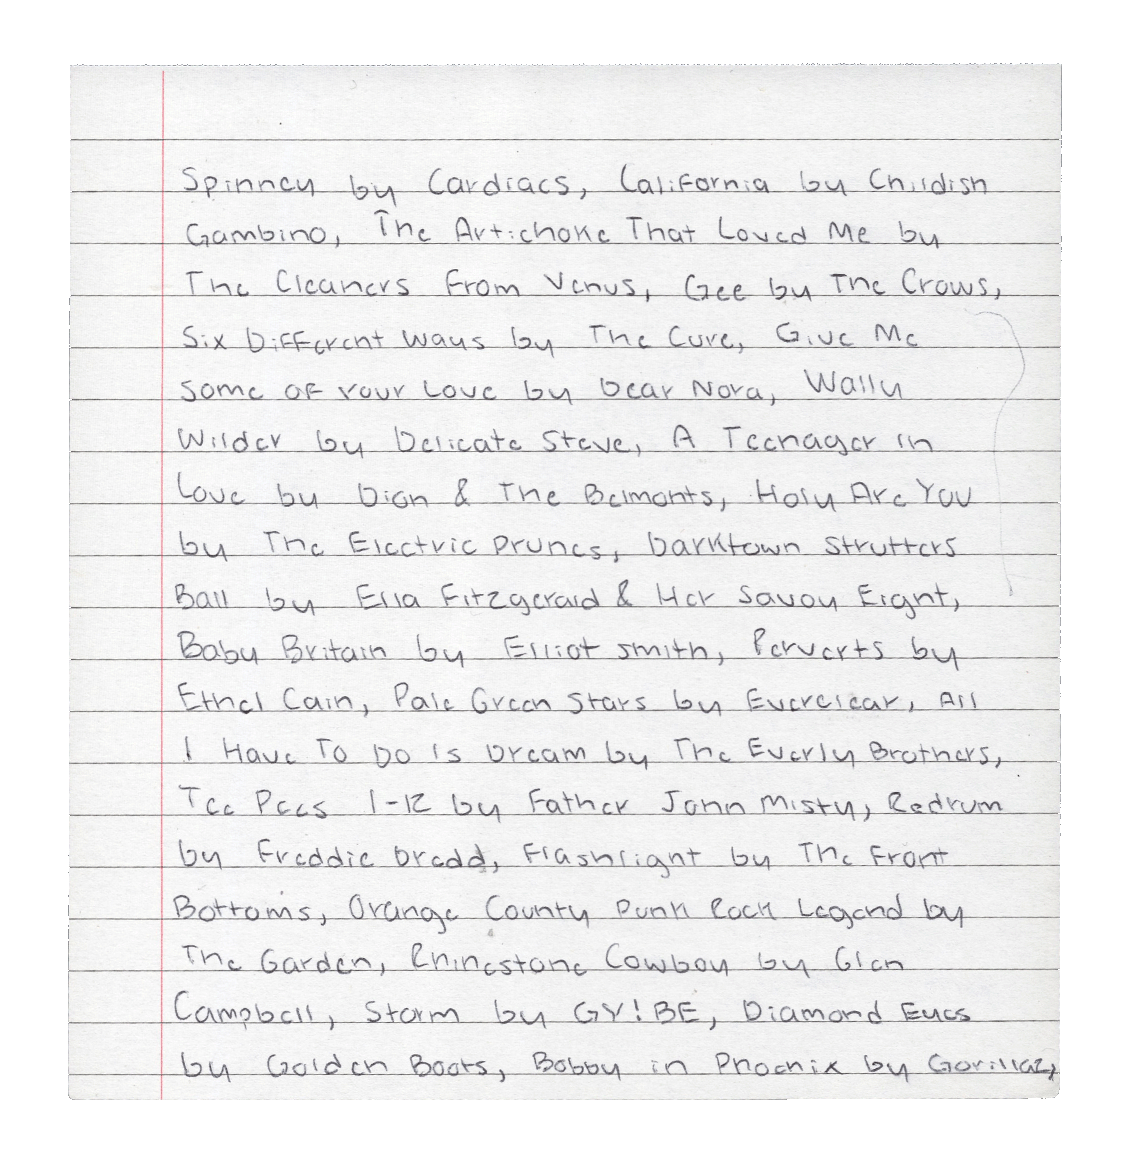 Spinney by Cardiacs, California by Childish
Gambino, The Artichoke That Loved Me by
The Cleaners From Venus, Gee by The Crows,
Six Different Ways by The Cure, Give Me
Some of Your Love by Dear Nora, Wally
Wilder by Delicate Steve, A Teenager in
Love by Dion & The Belmonts, Holy Are You
by The Electric Prunes, Darktown Strutters
Ball by Ella Fitzgerald & Her Savoy Eight,
Baby Britain by Elliot Smith, Perverts by
Ethel Cain, Pale Green Stars by Everclear, All
I Have To Do Is Dream by The Everly Brothers,
Tee Pees 1-12 by Father John Misty, Redrum
by Freddie Dredd, Flashlight by The Front
Bottoms, Orange County Punk Rock Legend by
The Garden, Rhinestone Cowboy by Glen
Campbell, Storm by GY!BE, Diamond Eyes
by Golden Boots, Bobby in Phoenix by Gorillaz,